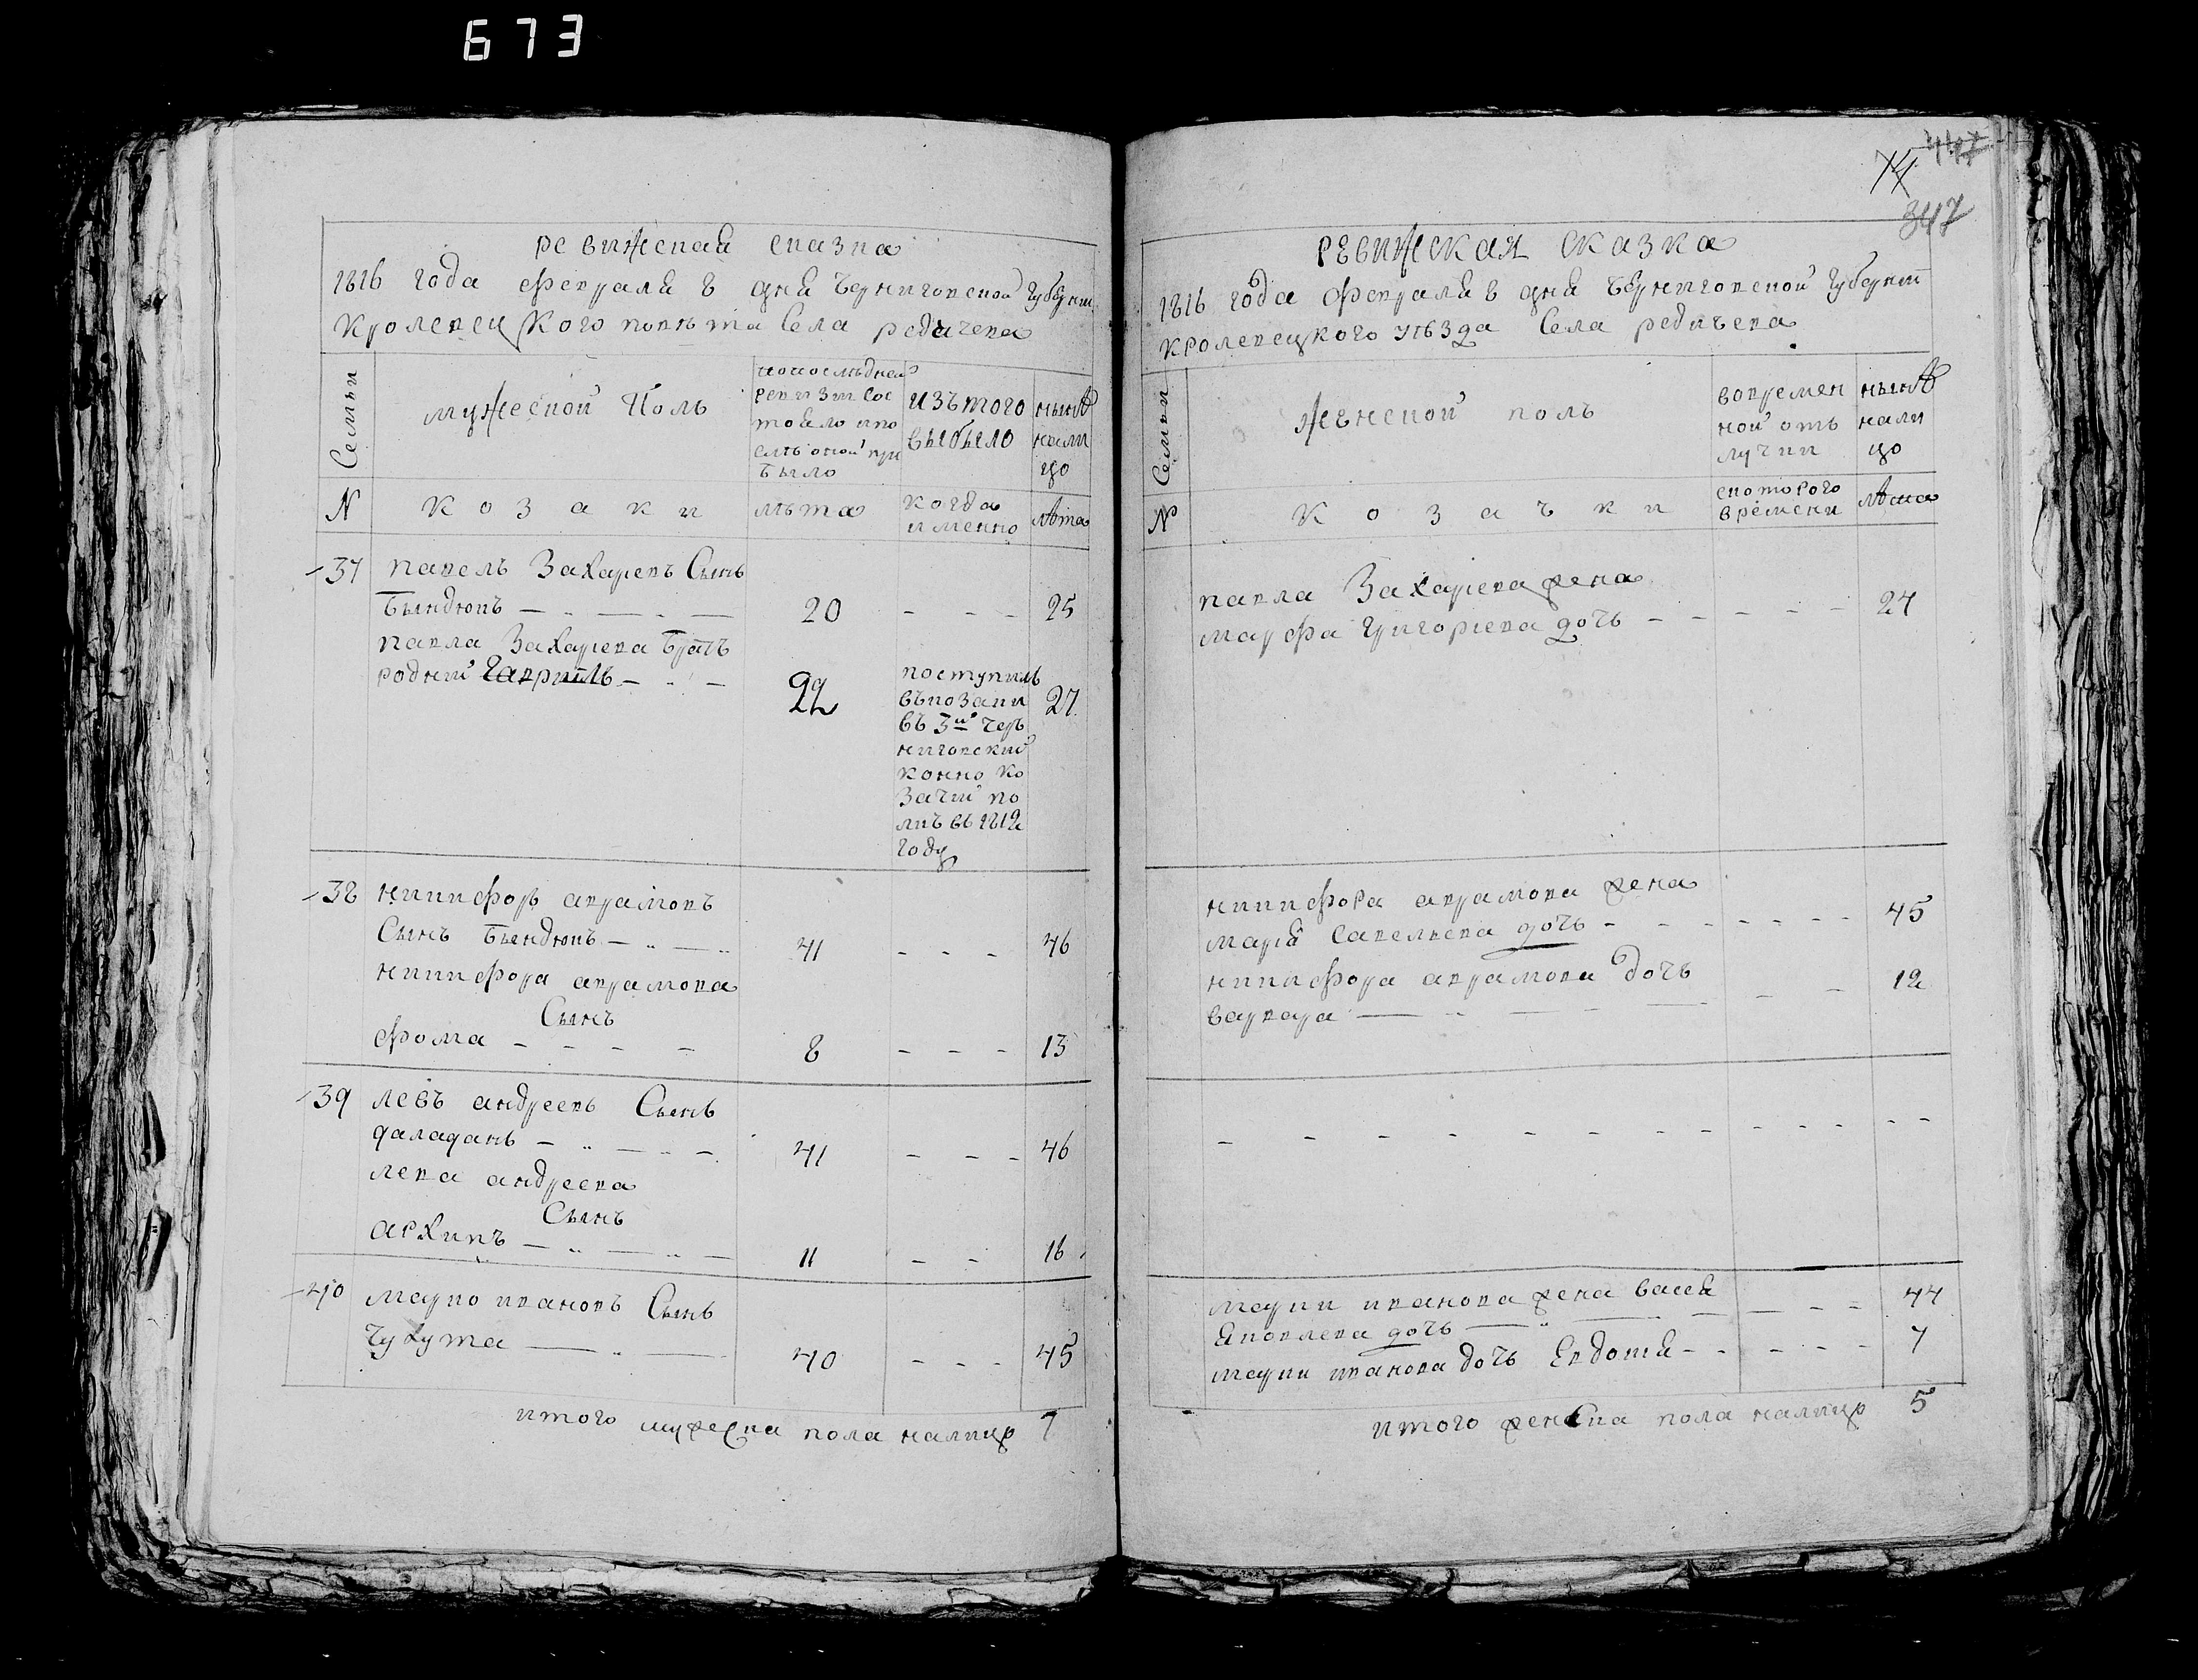 673
447
74
347
ревижская сказка
1816 года февраля 8 дня Черниговской Губернии
Кролевецкого повѣта Села редичева
Семьи
мужеской Полъ
попослѣдней
ревизіи сос
тояло и по
слѣ оной при
было
изътого
выбыло
нынѣ
нали
цо
N
козаки
лѣта
когда
именно
лѣта
37 павелъ Захаріевъ Сынъ
Быидюкъ 20 25
павла Захаріева братъ
родній Гаврііль 22 27
поступилъ
въкозаки
въ 3й чер
ниговскій
конно ко
зачій по
лкъ въ 1812
году
38 никифоръ аврамовъ
Сынъ Бындюкъ 41 46
никифора аврамова
Сынъ
фома 8 13
39 левъ андреевъ Сынъ
даладанъ 41 46
лева андреева
Сынъ
архипъ 11 16
40 марко ивановъ Сынъ
Чухута 40 45
итого мужеска пола налицо 7
РЕВИЖСКАЯ СКАЗКА
1816 года февраля 8 дня Черниговской Губерніи
кролевецкого уѣзда Села редичева
Семьи
женской полъ
вовремен
ной отъ
лучки
нынѣ
нали
цо
N
козачки
скоторого
времени
лѣта
павла Захаріева жена
марфа Григоріева дочь 24
никифора аврамова жена
марія Савельева дочь 45
никифора аврамова дочь 12
варвара
марки иванова жена васса 44
Яковлева дочь
марки иванова дочь Евдотія 7
итого женска пола налицо 5